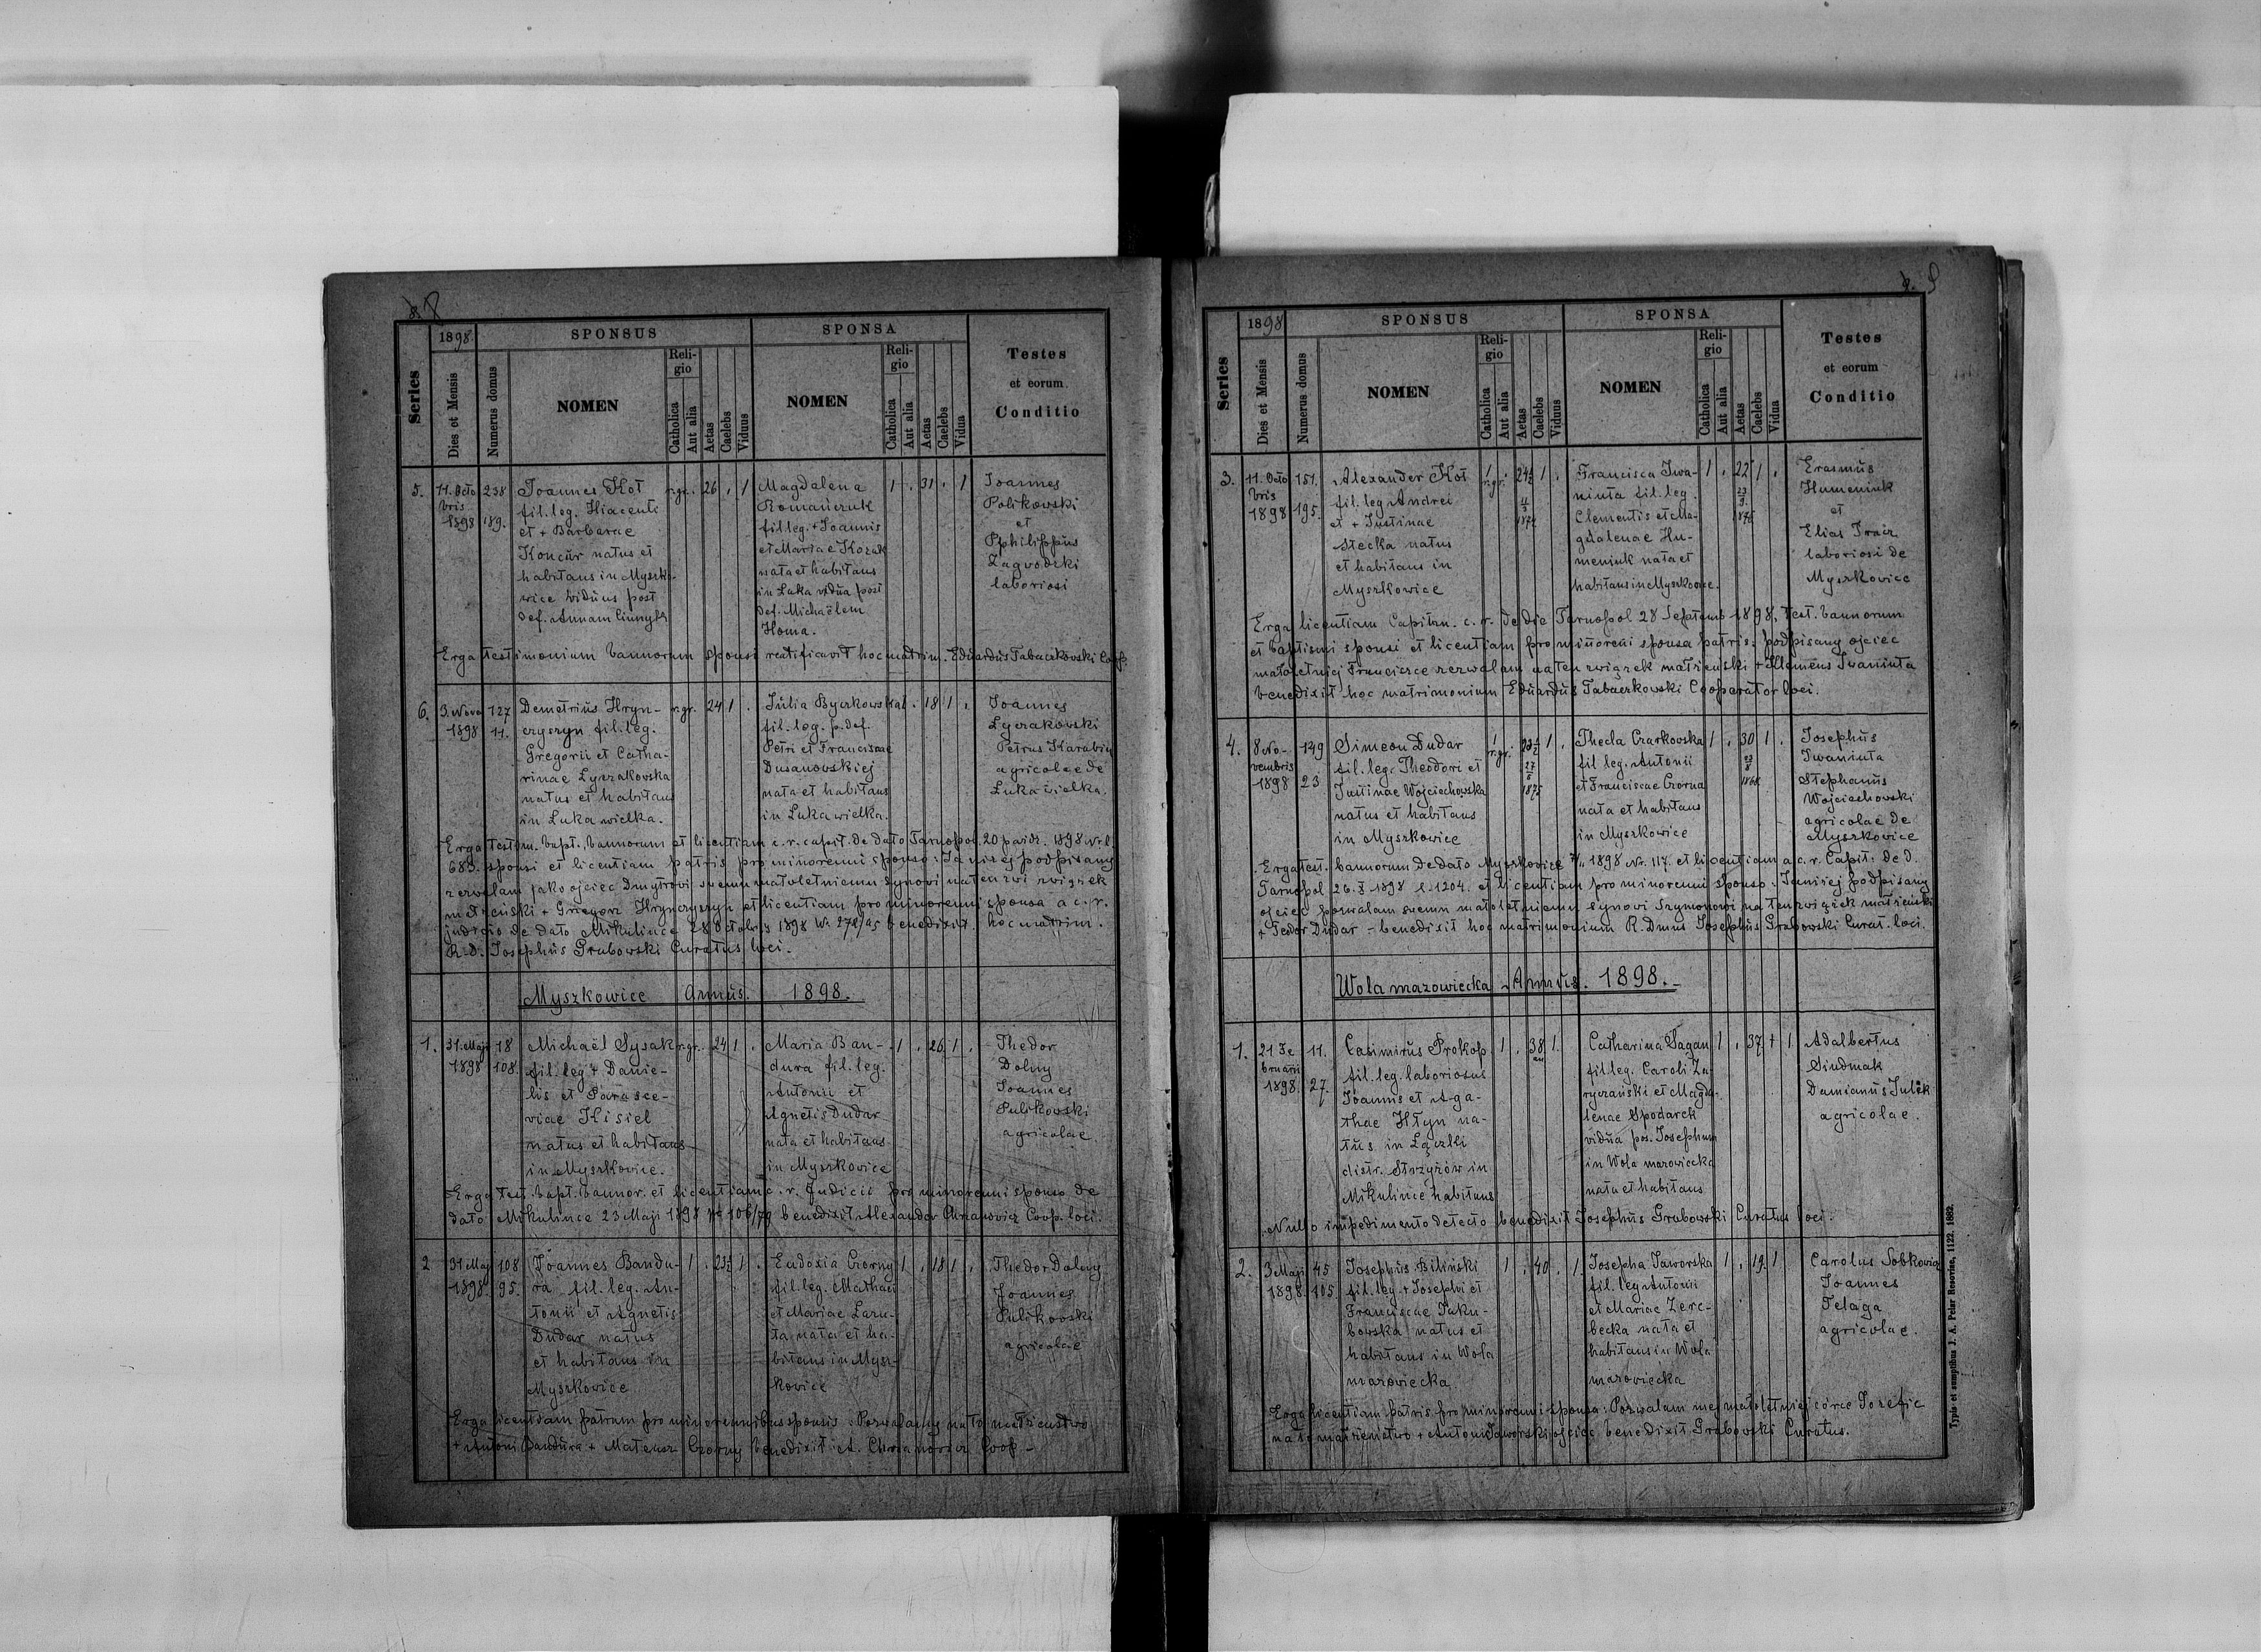 8.
Series
1898.
Dies et Mensis
Numerus domus
SPONSUS
NOMEN
Reli-
gio
Catholica
Aut alia
Aetas
Caelebs
Viduus
SPONSA
NOMEN
Reli-
gio
Catholica
Aut alia
Aetas
Caelebs
Vidua
Testes
et eorum
Conditio
5.
11. Octo
bris
1898
238
189.
Joannes Kot
fil. leg. Hiacenti
et + Barbarae
Koncur natus et
habitans in Myszko-
wice viduus post
def. Annam
r.gr. . 26 . 1
Magdalena
Romańczuk
fil leg. + Joannis
et Mariae Kozak
nata et habitans
in Luka vidua post
def. Michaëlem
Homa.
1 . 31 . 1
Joannes
Polikowski
et
Philippus
Zagvodzki
laboriosi
Erga testimonium bannorum sponsi ratificavit hoc matrim. Eduardus Tabaczkovski Coop.
6.
3. Nove
1898
127
11.
Demetrius Hryn-
czyszyn fil. leg.
Gregorii et Catha-
rinae Lyczakowska
natus et habitans
in Luka wielka.
r.gr. 24 1 .
Julia Byczkowska
fil. leg. p. def.
Petri et Franciscae
Dusanowskiej
nata et habitans
in Luka wielka.
1 . 18 1 .
Joannes
Lyczakowski
Petrus Harabin
agricolae de
Luka wielka.
Erga testim. bapt., bannorum et licentiam c. r. capit. de dato Tarnopol 20 paidz. 1898 Nr l.
683. sponsi et licentiam patris pro minorenni sponso: Ja niżej podpisany
zezwalam jako ojciec Dmytrovi swemu małoletniemu synovi na ten związek
małżeński + Grzegorz Hrynczyszyn et licentiam pro minorenni sponsa a c. r.
judicio de dato Mikulince 28 Octobris 1898 Nr. benedixit hoc matrim.
R. D. Josephus Grabowski Curatus loci.
Myszkowice Annus. 1898.
1.
31. Maji
1898
18
108
Michaël Sysak
fil. leg + Danie-
lis et Parasce-
viae Kisiel
natus et habitans
in Myszkowice.
r.gr. . 24 1 .
Maria Ban-
dura fil. leg.
Antonii et
Agnetis Dudar
nata et habitans
in Myszkowice
1 . 26 1 .
Thedor
Dolny
Joannes
Pulikowski
agricolae
Erga test. bapt. bannor. et licentiam c. r. Judicii pro minorenni sponso de
dato Mikulince 23 Maji 1898 benedixit Alexander Chrzanowicz Coop. loci.
2
31 Maj
1898.
108
95.
Joannes Bandu-
ra fil. leg. An-
tonii et Agnetis
Dudar natus
et habitans in
Myszkowice
1 . 23½ 1 .
Eudoxia Czorny
fil. leg. Mathaei
et Mariae Laru-
ta nata et ha-
bitans in Mysz-
kovice
1 . 18 1 .
Thedor Dolny
Joannes
Pulikovski
agricolae
Erga licentiam patrum pro minorennibus sponsis: Pozwalamy na to małżeństwo
+ Antoni Bandura + Mateusz Czorny benedixit A. Chrzanowicz Coop -
9
Series
1898
Dies et Mensis
Numerus domus
SPONSUS
NOMEN
Reli-
gio
Catholica
Aut alia
Aetas
Caelebs
Viduus
SPONSA
NOMEN
Reli-
gio
Catholica
Aut alia
Aetas
Caelebs
Vidua
Testes
et eorum
Conditio
3.
11. Octo
bris
1898
151.
195.
Alexander Kot
fil. leg Andrei
et + Justinae
Stecka natus
et habitans in
Myszkowice
1 r.gr. . 24½ 1 .
1874
Francisca Iwa-
niuta fil. leg.
Clementis et Ma-
gdalenae Hu-
meniuk nata et
habitans in Myszkowice.
1 . 22 1 .
23
9
1876
Erasmus
Humeniuk
et
Elias Tracz
laboriosi de
Myszkowice
Erga licentiam Capitan. c. r. de die Tarnopol 28 Septemb 1898, test. bannorum
et baptismi sponsi et licentiam pro minoreni sponsa patris: podpisany ojciec
małoletniej Francisce zezwalam na ten związek małżenski + Klemens Iwaniuta
benedixit hoc matrimonium Eduardus Tabaczkowski Cooperator loci.
4.
8 No-
vembris
1898
149
23
Simeon Dudar
fil. leg. Theodori et
Justinae Wojciechowska
natus et habitans
in Myszkowice
1 r.gr. 23½ 1 .
27
5
1875
Thecla Czarkowska
fil leg. Antonii
et Franciscae Czorna
nata et habitans
in Myszkowice
1 . 30 1 .
1868
Josephus
Iwaniuta
Stephanus
Wojciechovski
agricolae de
Myszkovice
Erga test. bannorum de dato Myszkovice 7/11 1898 Nr. 117. et licentiam a c. r. Capit. de d.
Tarnopol 26. X 1898 l. 1204. et licentiam pro minorenni sponso: Ja niżej podpisany
ojciec pozwalam swemu małoletniemu synowi Szymonowi na ten związek małżeński
+ Fedor Dudar - benedixit hoc matrimonium R. Dmus Josephus Grabowski Curat. loci.
Wola mazowiecka Annus. 1898.-
1.
21 Fe
bruarii
1898.
11.
27.
Casimirus Prokop
fil. leg. laboriosus
Joannis et Aga-
thae Hłyn na-
tus in Lączki
distr. Strzyżów in
Mikulince habitans
1 . 38 1.
Catharina Sagan
fil leg. Caroli Za-
ryczański et Magda-
lenae Spodarek
vidua pos. Josephum
in Wola mazowiecka
nata et habitans
1 . 37 + 1
Adalbertus
Siudmak
Damianus Julik
agricolae.
Nullo impedimento detecto benedixit Josephus Grabowski Curatus loci.
2.
3 Maji
1898.
45
105
Josephus Biliński
fil. leg. + Josephi et
Franciscae Jaku-
bowska natus et
habitans in Wola
mazowiecka
1 . 40 . 1.
Josepha Jaworska
fil. leg Antonii
et Mariae Zere-
becka nata et
habitans in Wola
mazowiecka
1 . 19 1
Carolus Sobkowicz
Joannes
Telaga
agricolae.
Erga licentiam patris pro minorenni sponsa: Pozwalam mej małoletniej córce Jozefie
na to małżeństwo + Antoni Jaworski ojciec benedixit Grabowski Curatus.
Typis et sumptibus J. A. Pelar Resoviae, 1122. 1882.